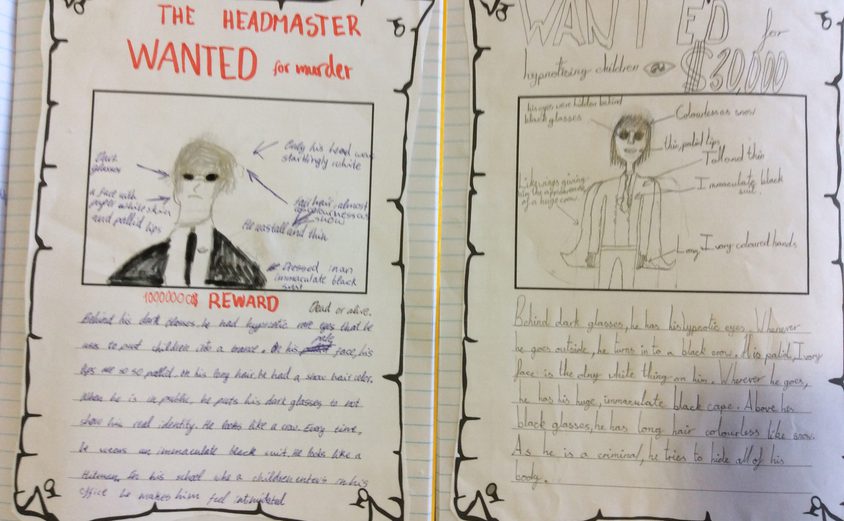 THE HEADMASTER
WANTED for murder
Dark
glasses
a face with
white skin
and pallid lips
Only his head was
startlingly white
fair hair, almost
colourless as
snow
He was tall and thin
Dressed in an
immaculate black
suit
REWARD
Dead or alive.
Behind his dark glasses, he had hypnotic eyes that he
uses to put children into a trance. On his pale face, his
lips are so so pallid. On his long hair he had a snow hair color.
When he is in public, he puts his dark glasses to not
show his real identity. He looks like a crow. Every time,
he wears an immaculate black suit. He looks like a
Hitman. In his school when a children enters in his
office he makes him feel intimidated
WANTED for
hypnotising children $30,000
his eyes were hidden behind
black glasses
Colourless as snow
thin, pallid lips
Tall and thin
Immaculate black
suit
Like wings giving
him the appearance
of a huge crow.
Long Ivory coloured hands
Behind dark glasses, he has his hypnotic eyes. Whenever
he goes outside, he turns in to a black crow. His palid, Ivory
face is the only white thing on him. Wherever he goes,
he has his huge, immaculate black cape. Above his
black glasses, he has long hair colourless like snow.
As he is a criminal, he tries to hide all of his
body.